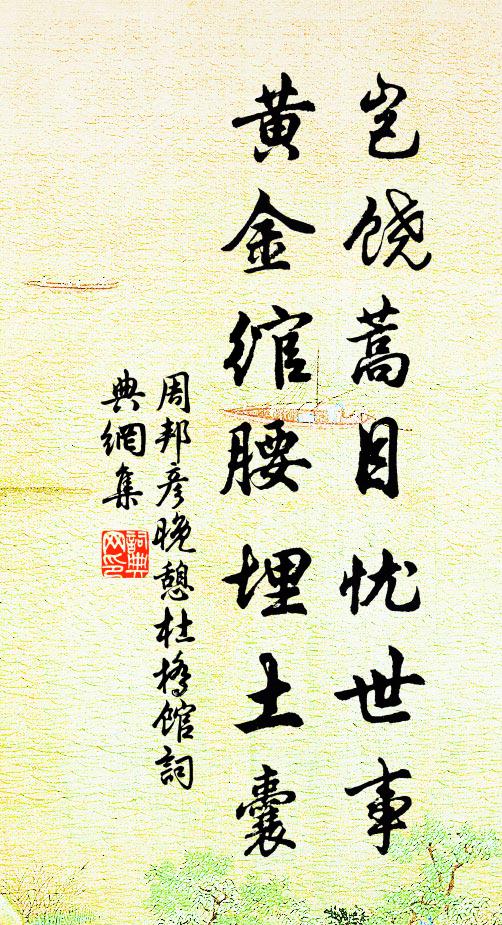 岂饶蒿目忧世事
黄金绾腰埋土囊
周邦彦晚憩杜桥馆词
典網集
詞典
网印